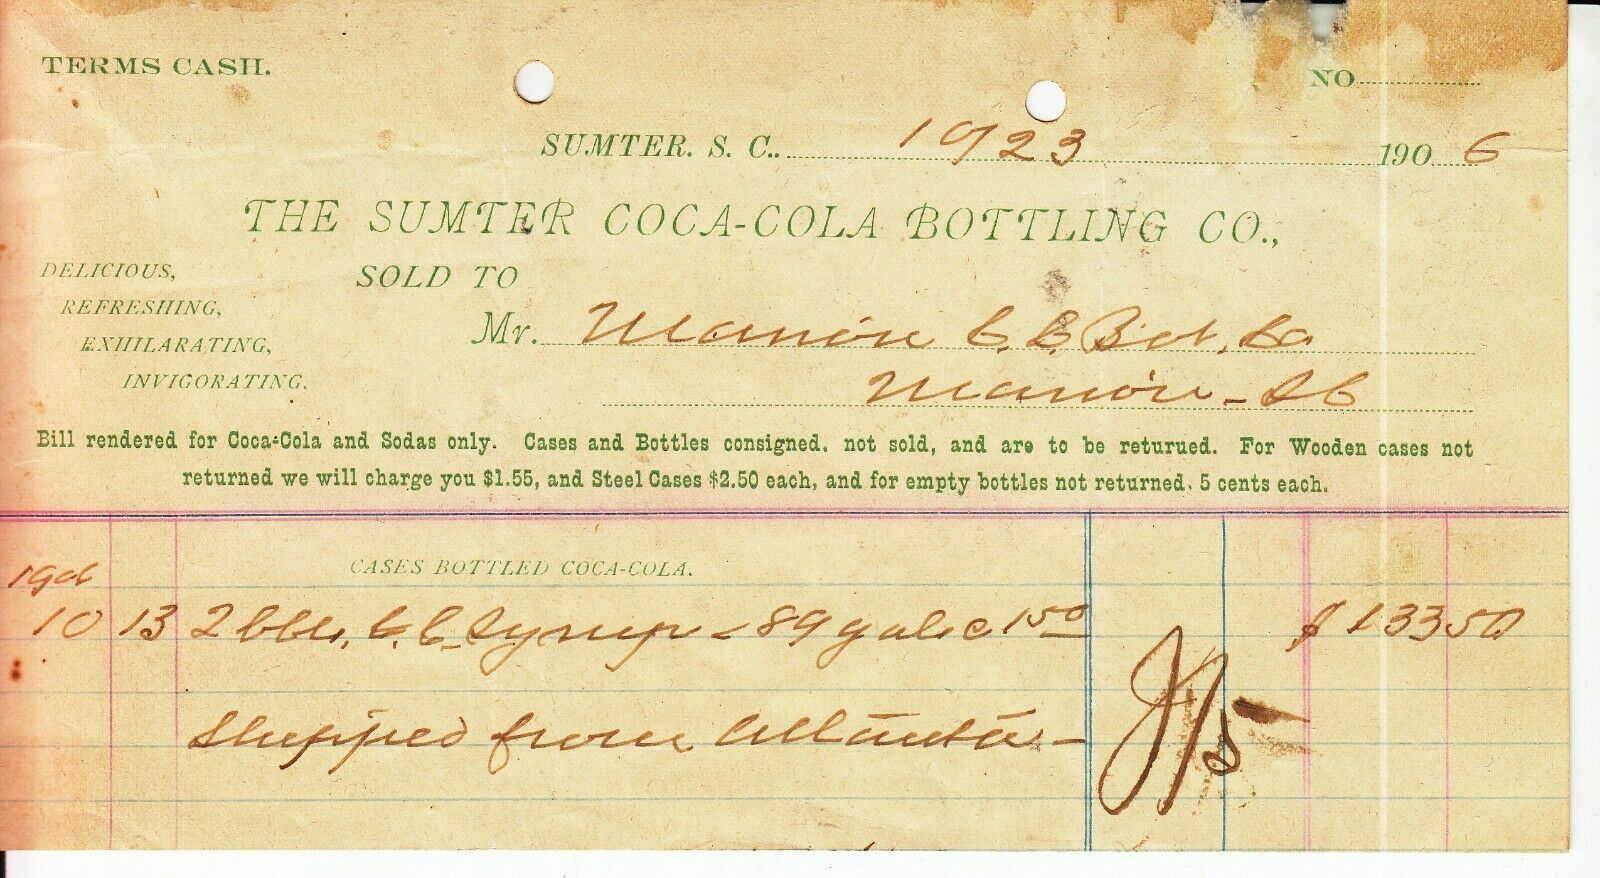 TERMS CASH.
NO
SUMTER. S. C.. 10/23 1906
THE SUMTER COCA-COLA BOTTLING CO.,
DELICIOUS,
REFRESHING,
EXHILARATING,
INVIGORATING.
SOLD TO
Mr. Marion C. C. Bot. Co
Marion - SC
Bill rendered for Coca-Cola and Sodas only. Cases and Bottles consigned, not sold, and are to be returued. For Wooden cases not
returned we will charge you $1.55, and Steel Cases $2.50 each, and for empty bottles not returned, 5 cents each.
CASES BOTTLED COCA-COLA.
1906
10 13 2 bbls, C. C. Syrup - 89 gals @ 1 50 $ 133 50
Shipped from Atlanta -